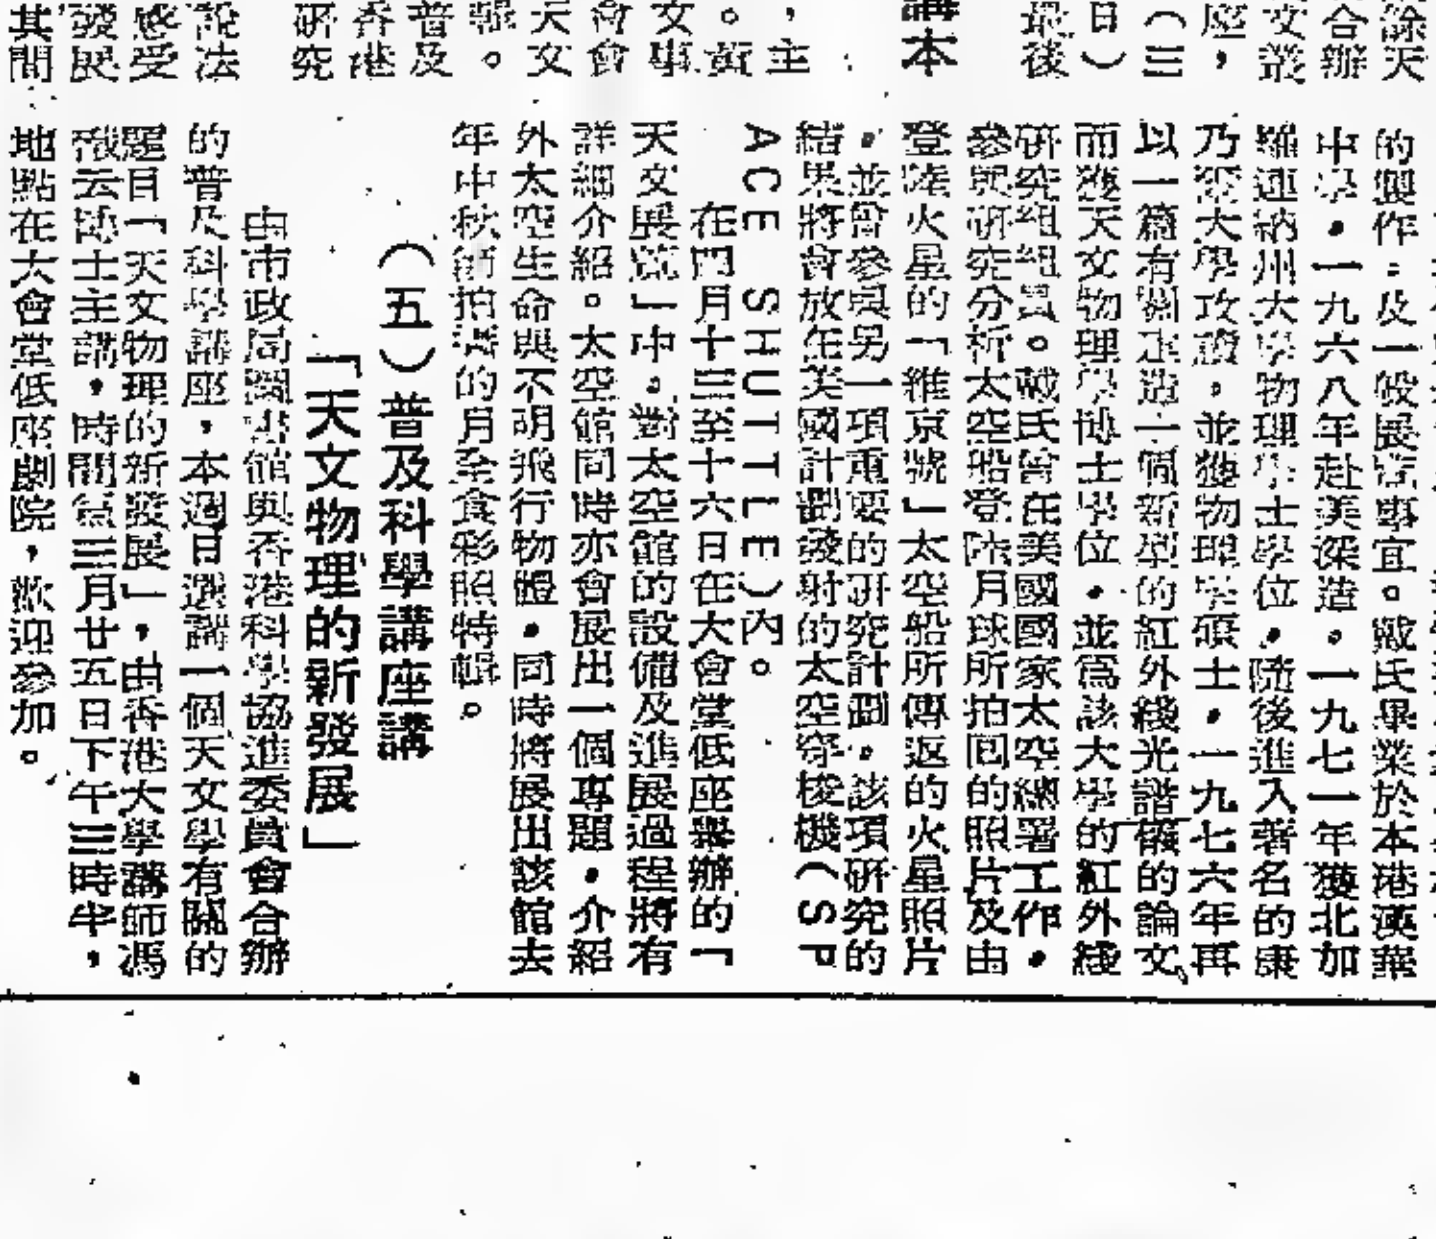 餘天
合辦
文叢
座，
（三
日）
最後
講本
，主
。黃
文事
會會
天文
輯。
普及
香港
研究
說法
感受
發展
其間
的製作，及一般展覽事宜。戴氏畢業於本港漢華
中學，一九六八年赴美深造。一九七一年獲北加
羅連納州大學物理學士學位，隨後進入著名的康
乃爾大學攻讀，並獲物理學碩士，一九七六年再
以一篇有關建造一個新型的紅外綫光譜儀的論文
而獲天文物理學博士學位，並為該大學的紅外綫
研究組組員。戴氏曾在美國國家太空總署工作，
參與研究分析太空船登陸月球所拍回的照片及由
登陸火星的「維京號」太空船所傳返的火星照片
，並曾參與另一項重要的研究計劃。該項研究的
結果將會放在美國計劃發射的太空穿梭機（SP
ACE SHUTTLE）內。
在四月十三至十六日在大會堂低座舉辦的「
天文展覽」中。對太空館的設備及進展過程將有
詳細介紹。太空館同時亦會展出一個專題，介紹
外太空生命與不明飛行物體，同時將展出該館去
年中秋節拍得的月全食彩照特輯。
（五）普及科學講座講
「天文物理的新發展」
由市政局圖書館與香港科學協進委員會合辦
的普及科學講座，本週日選講一個天文學有關的
題目「天文物理的新發展」，由香港大學講師馮
云博士主講，時間為三月廿五日下午三時半，
地點在大會堂低座劇院，歡迎參加。